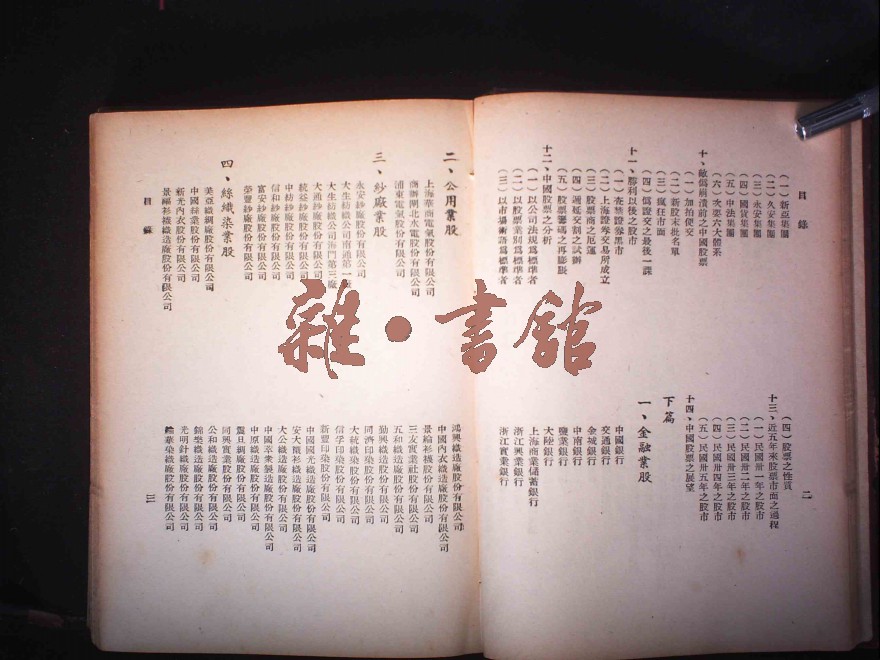 目錄
二
(一)新亞集團
(二)久安集團
(三)永安集團
(四)國貨集團
(五)中法集團
(六)次要六大體系
十、敵僞崩潰前之中國股票
(一)加拍便交
(二)新股末批名單
(三)瘋狂市面
(四)僞證交之最後一課
十一、勝利以後之股市
(一)查禁證券黑市
(二)上海證券交易所成立
(三)股票商之厄運
(四)遞延交割之試辦
(五)股票籌碼之再膨脹
十二、中國股票之分析
(一)以公司法規爲標準者
(二)以股票業別爲標準者
(三)以市場術語爲標準者
(四)股票之性質
十三、近五年來股票市面之過程
(一)民國卅一年之股市
(二)民國卅二年之股市
(三)民國卅三年之股市
(四)民國卅四年之股市
(五)民國卅五年之股市
十四、中國股票之展望
下篇
一、金融業股
中國銀行
交通銀行
金城銀行
中南銀行
鹽業銀行
大陸銀行
上海商業儲蓄銀行
浙江興業銀行
浙江實業銀行
二、公用業股
上海華商電氣股份有限公司
商辦閘北水電股份有限公司
浦東電氣股份有限公司
三、紗廠業股
永安紗廠股份有限公司
大生紡織公司南通第一廠
大生紡織公司海門第三廠
大通紗廠股份有限公司
統益紗廠股份有限公司
中紡紗廠股份有限公司
信和紗廠股份有限公司
富安紗廠股份有限公司
榮豐紗廠股份有限公司
四、絲織染業股
美亞織綢廠股份有限公司
中國絲業股份有限公司
新光內衣股份有限公司
景福衫襪織造廠股份有限公司
鴻興織造廠股份有限公司
中國內衣織造廠股份有限公司
景綸衫襪廠股份有限公司
三友實業社股份有限公司
五和織造廠股份有限公司
勤興織造廠股份有限公司
同濟印染股份有限公司
大統織染股份有限公司
信孚印染股份有限公司
新豐印染股份有限公司
中國國光織造廠股份有限公司
安大襯衫織造廠股份有限公司
大公織造廠股份有限公司
中國萃衆製造股份有限公司
中原織造廠股份有限公司
震旦綢廠股份有限公司
同興實業股份有限公司
公和織造廠股份有限公司
錦樂織造廠股份有限公司
光明針織廠股份有限公司
華染織廠股份有限公司
目錄
三
雜·書館